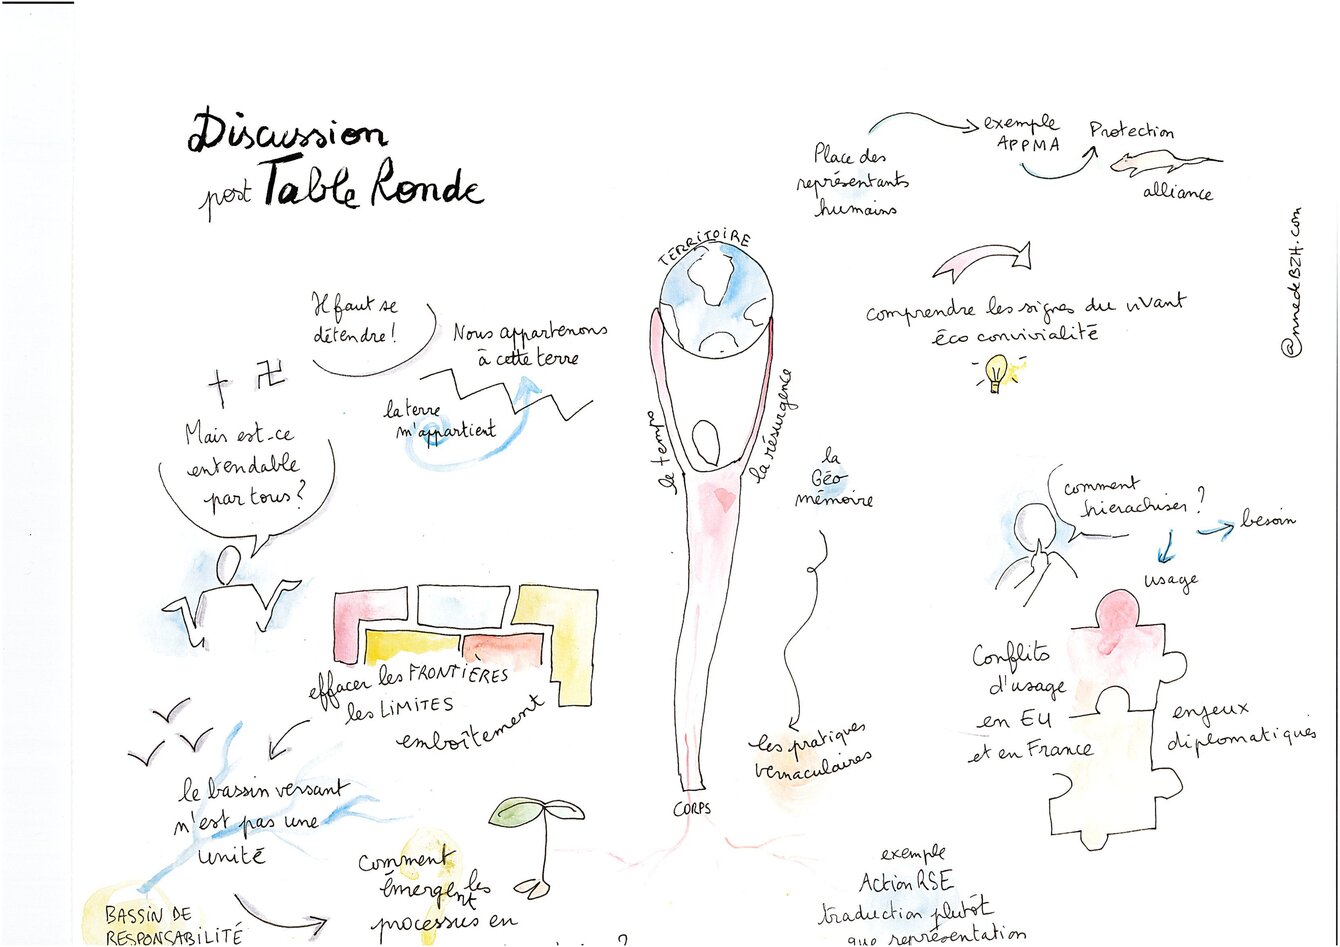 Discussion
post Table Ronde
Il faut se
détendre!
Nous appartenons
à cette terre
la terre
m'appartient
Mais est-ce
entendable
par tous?
effacer les FRONTIÈRES
les LIMITES
emboîtement
le bassin versant
n'est pas une
unité
BASSIN DE
RESPONSABILITÉ
Comment
émergent les
processus en
?
TERRITOIRE
le temps
la résurgence
CORPS
la
Géo
mémoire
les pratiques
vernaculaires
Place des
représentants
humains
exemple
APPMA
Protection
alliance
comprendre les signes du vivant
éco convivialité
comment
hierachiser?
besoin
usage
Conflits
d'usage
en EU
et en France
enjeux
diplomatiques
exemple
Action RSE
traduction plutôt
que représentation
@nnedeBZH.com